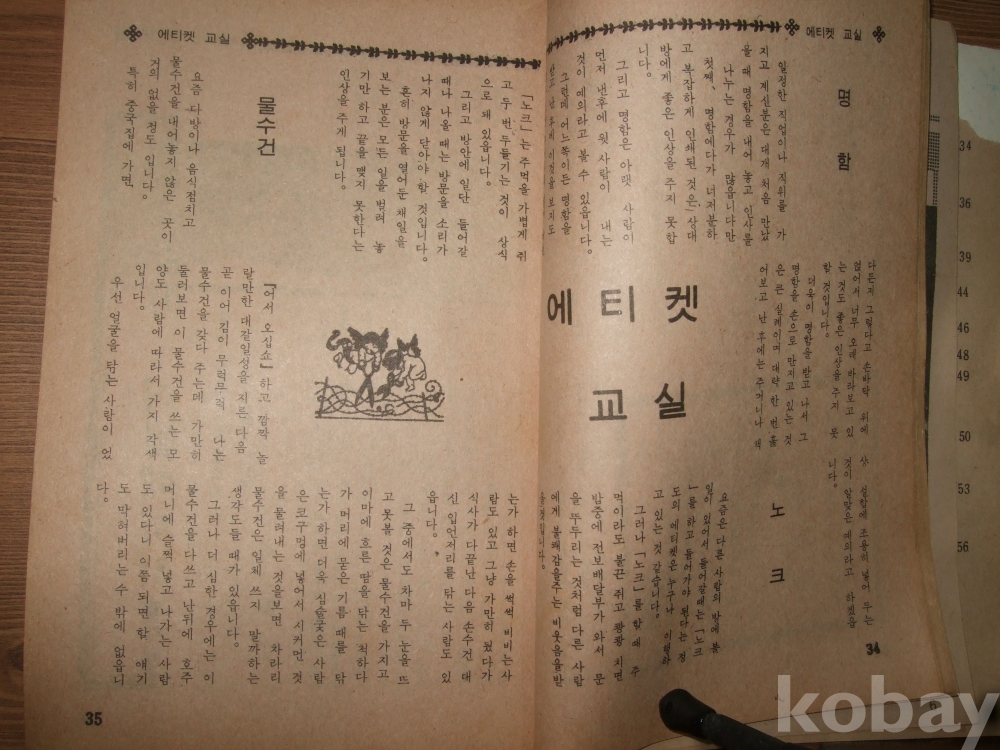 에티켓 교실
에티켓 교실
명함
일정한 직업이나 직위를 가
지고 계신분은 대개 처음 만났
을 때 명함을 내어 놓고 인사를
나누는 경우가 많읍니다만
첫째, 명함에다가 너저분하
고 복잡하게 인쇄된 것은 상대
방에게 좋은 인상을 주지 못합
니다.
그리고 명함은 아랫 사람이
먼저 낸후에 윗 사람이 내는
것이 예의라고 볼 수 있읍니다.
그런데 어느쪽이든 명함을
받고 난 후에 이것을 보지도
다든지 그렇다고 손바닥 위에
얹어서 너무 오래 바라보고 있
는 것도 좋은 인상을 주지 못
할 것입니다.
더욱이 명함을 받고 나서 그
명함을 손으로 만지고 있는 것
은 큰 실례이며 대략 한 번 훑
어보고 난 후에는 주머니나 책
상 설합에 조용히 넣어 두는
것이 알맞은 예의라고 하겠읍
니다.
에티켓
교실
노크
요즘은 다른 사람의 방에 볼
일이 있어서 들어갈때는 「노크
」를 하고 들어가야 된다는 정
도의 에티켓은 누구나 이행하
고 있는 것 같습니다.
그러나 「노크」를 할 때 주
먹이라도 불끈 쥐고 쾅쾅 치면
밤중에 전보배달부가 와서 문
을 뚜두리는 것처럼 다른 사람
에게 불쾌감을주는 비웃음을받
을것입니다.
34
「노크」는 주먹을 가볍게 쥐
고 두 번 두들기는 것이 상식
으로 돼 있읍니다.
그리고 방안에 일단 들어갈
때나 나올 때는 방문을 소리가
나지 않게 닫아야 할 것입니다.
흔히 방문을 열어둔 채일을
보는 분은 모든 일을 벌려 놓
기만 하고 끝을 맺지 못한다는
인상을 주게 됩니다.
물수건
요즘 다방이나 음식점치고
물수건을 내어놓지 않은 곳이
거의 없을 정도 입니다.
특히 중국집에 가면,
『어서 오십쇼』하고 깜짝 놀
랄만한 대갈일성을 지른 다음
곧 이어 김이 무럭무럭 나는
물수건을 갖다 주는데 가만히
둘러보면 이 물수건을 쓰는 모
양도 사람에 따라서 가지 각색
입니다.
우선 얼굴을 닦는 사람이 있
는가 하면 손을 썩썩 비비는사
람도 있고 그냥 가만히 뒀다가
식사가 다끝난 다음 손수건 대
신 입언저리를 닦는 사람도 있
읍니다.
그 중에서도 차마 두 눈을 뜨
고 못볼 것은 물수건을 가지고
이마에 흐른 땀을 닦는 척하다
가 머리에 묻은 기름 때를 닦
는가 하면 더욱 심술궂은 사람
은 코구멍에 넣어서 시커먼 것
을 물려내는 것을보면 차라리
물수건은 일체 쓰지 말까하는
생각도들 때가 있읍니다.
그러나 더 심한 경우에는 이
물수건을 다 쓰고 난뒤에 호주
머니에 슬쩍 넣고 나가는 사람
도 있다니 이쯤 되면 할 얘기
도 막혀버리는 수 밖에 없읍니
다.
35
34
36
39
44
46
48
49
50
53
56
kobay